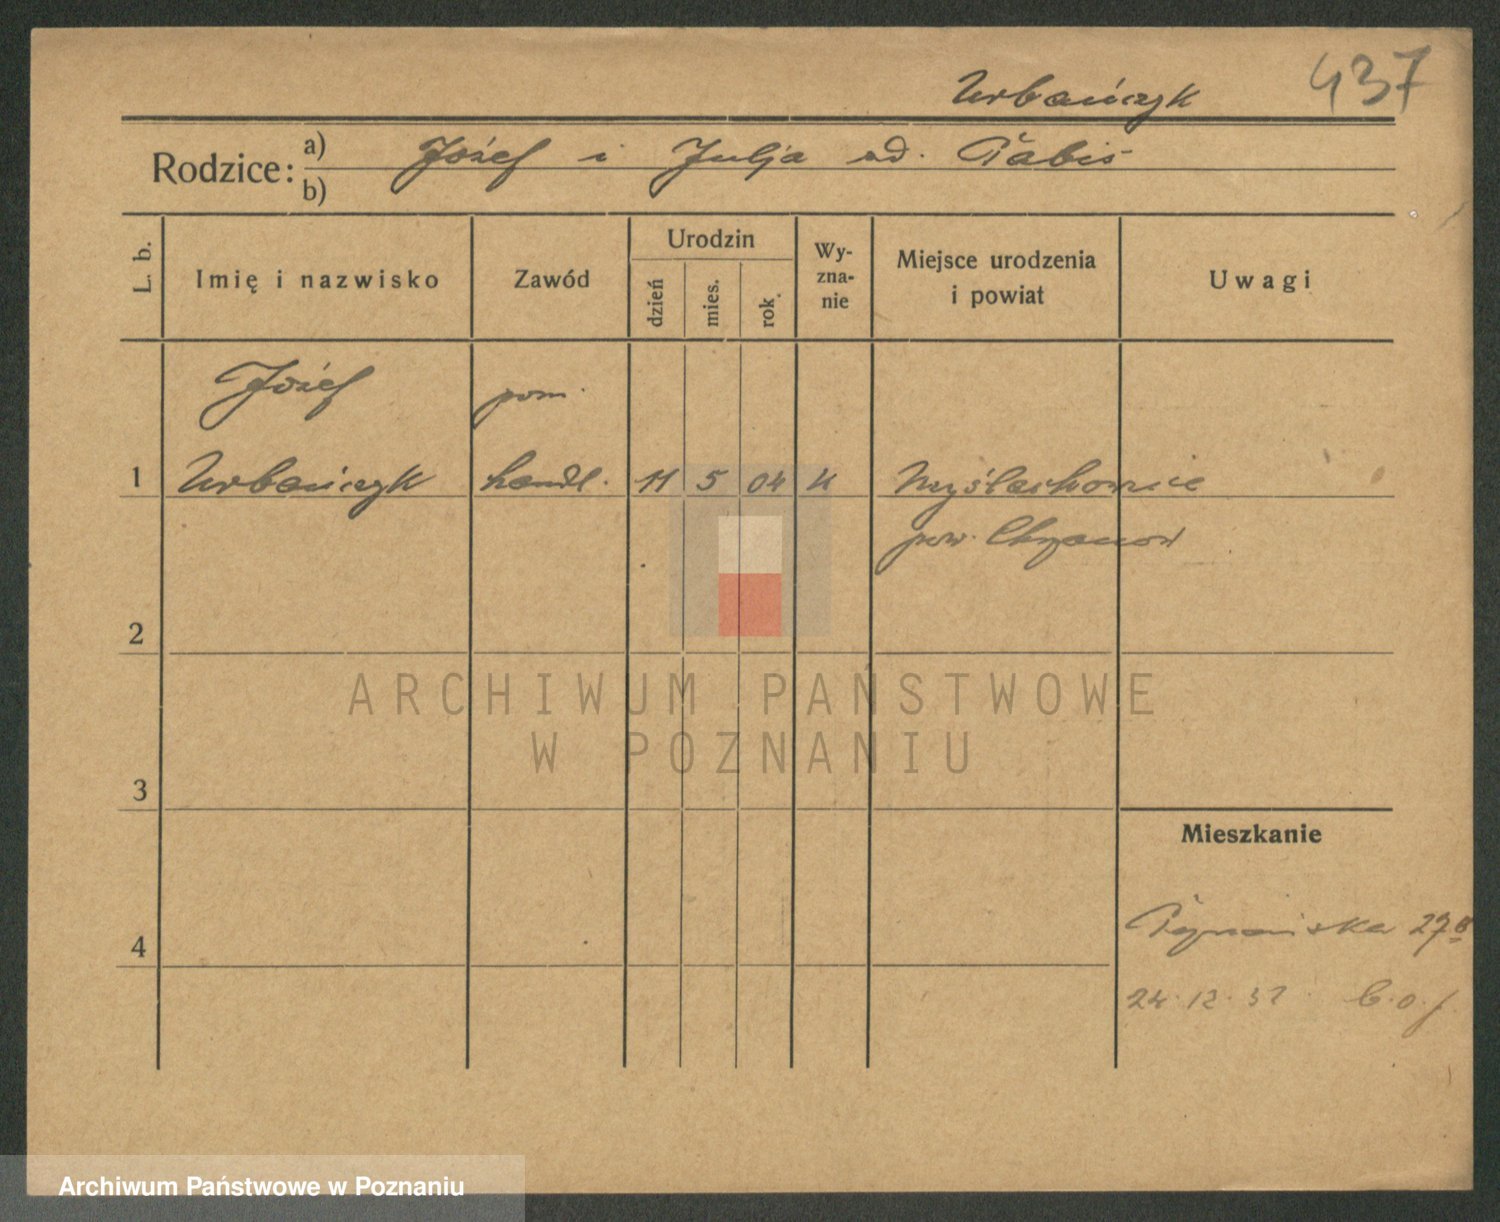 Urbańczyk 437
Rodzice: a) Józef i Julja zd. Pabiś
b)
L. b. Imię i nazwisko Zawód Urodzin dzień mies. rok Wy-zna-nie Miejsce urodzenia i powiat Uwagi
Józef pom.
1 Urbańczyk handl. 11 5 04 k Myślachowice
pow. Chrzanów
2
ARCHIWUM PAŃSTWOWE
W POZNANIU
3
Mieszkanie
4
27
24.12.32
Archiwum Państwowe w Poznaniu